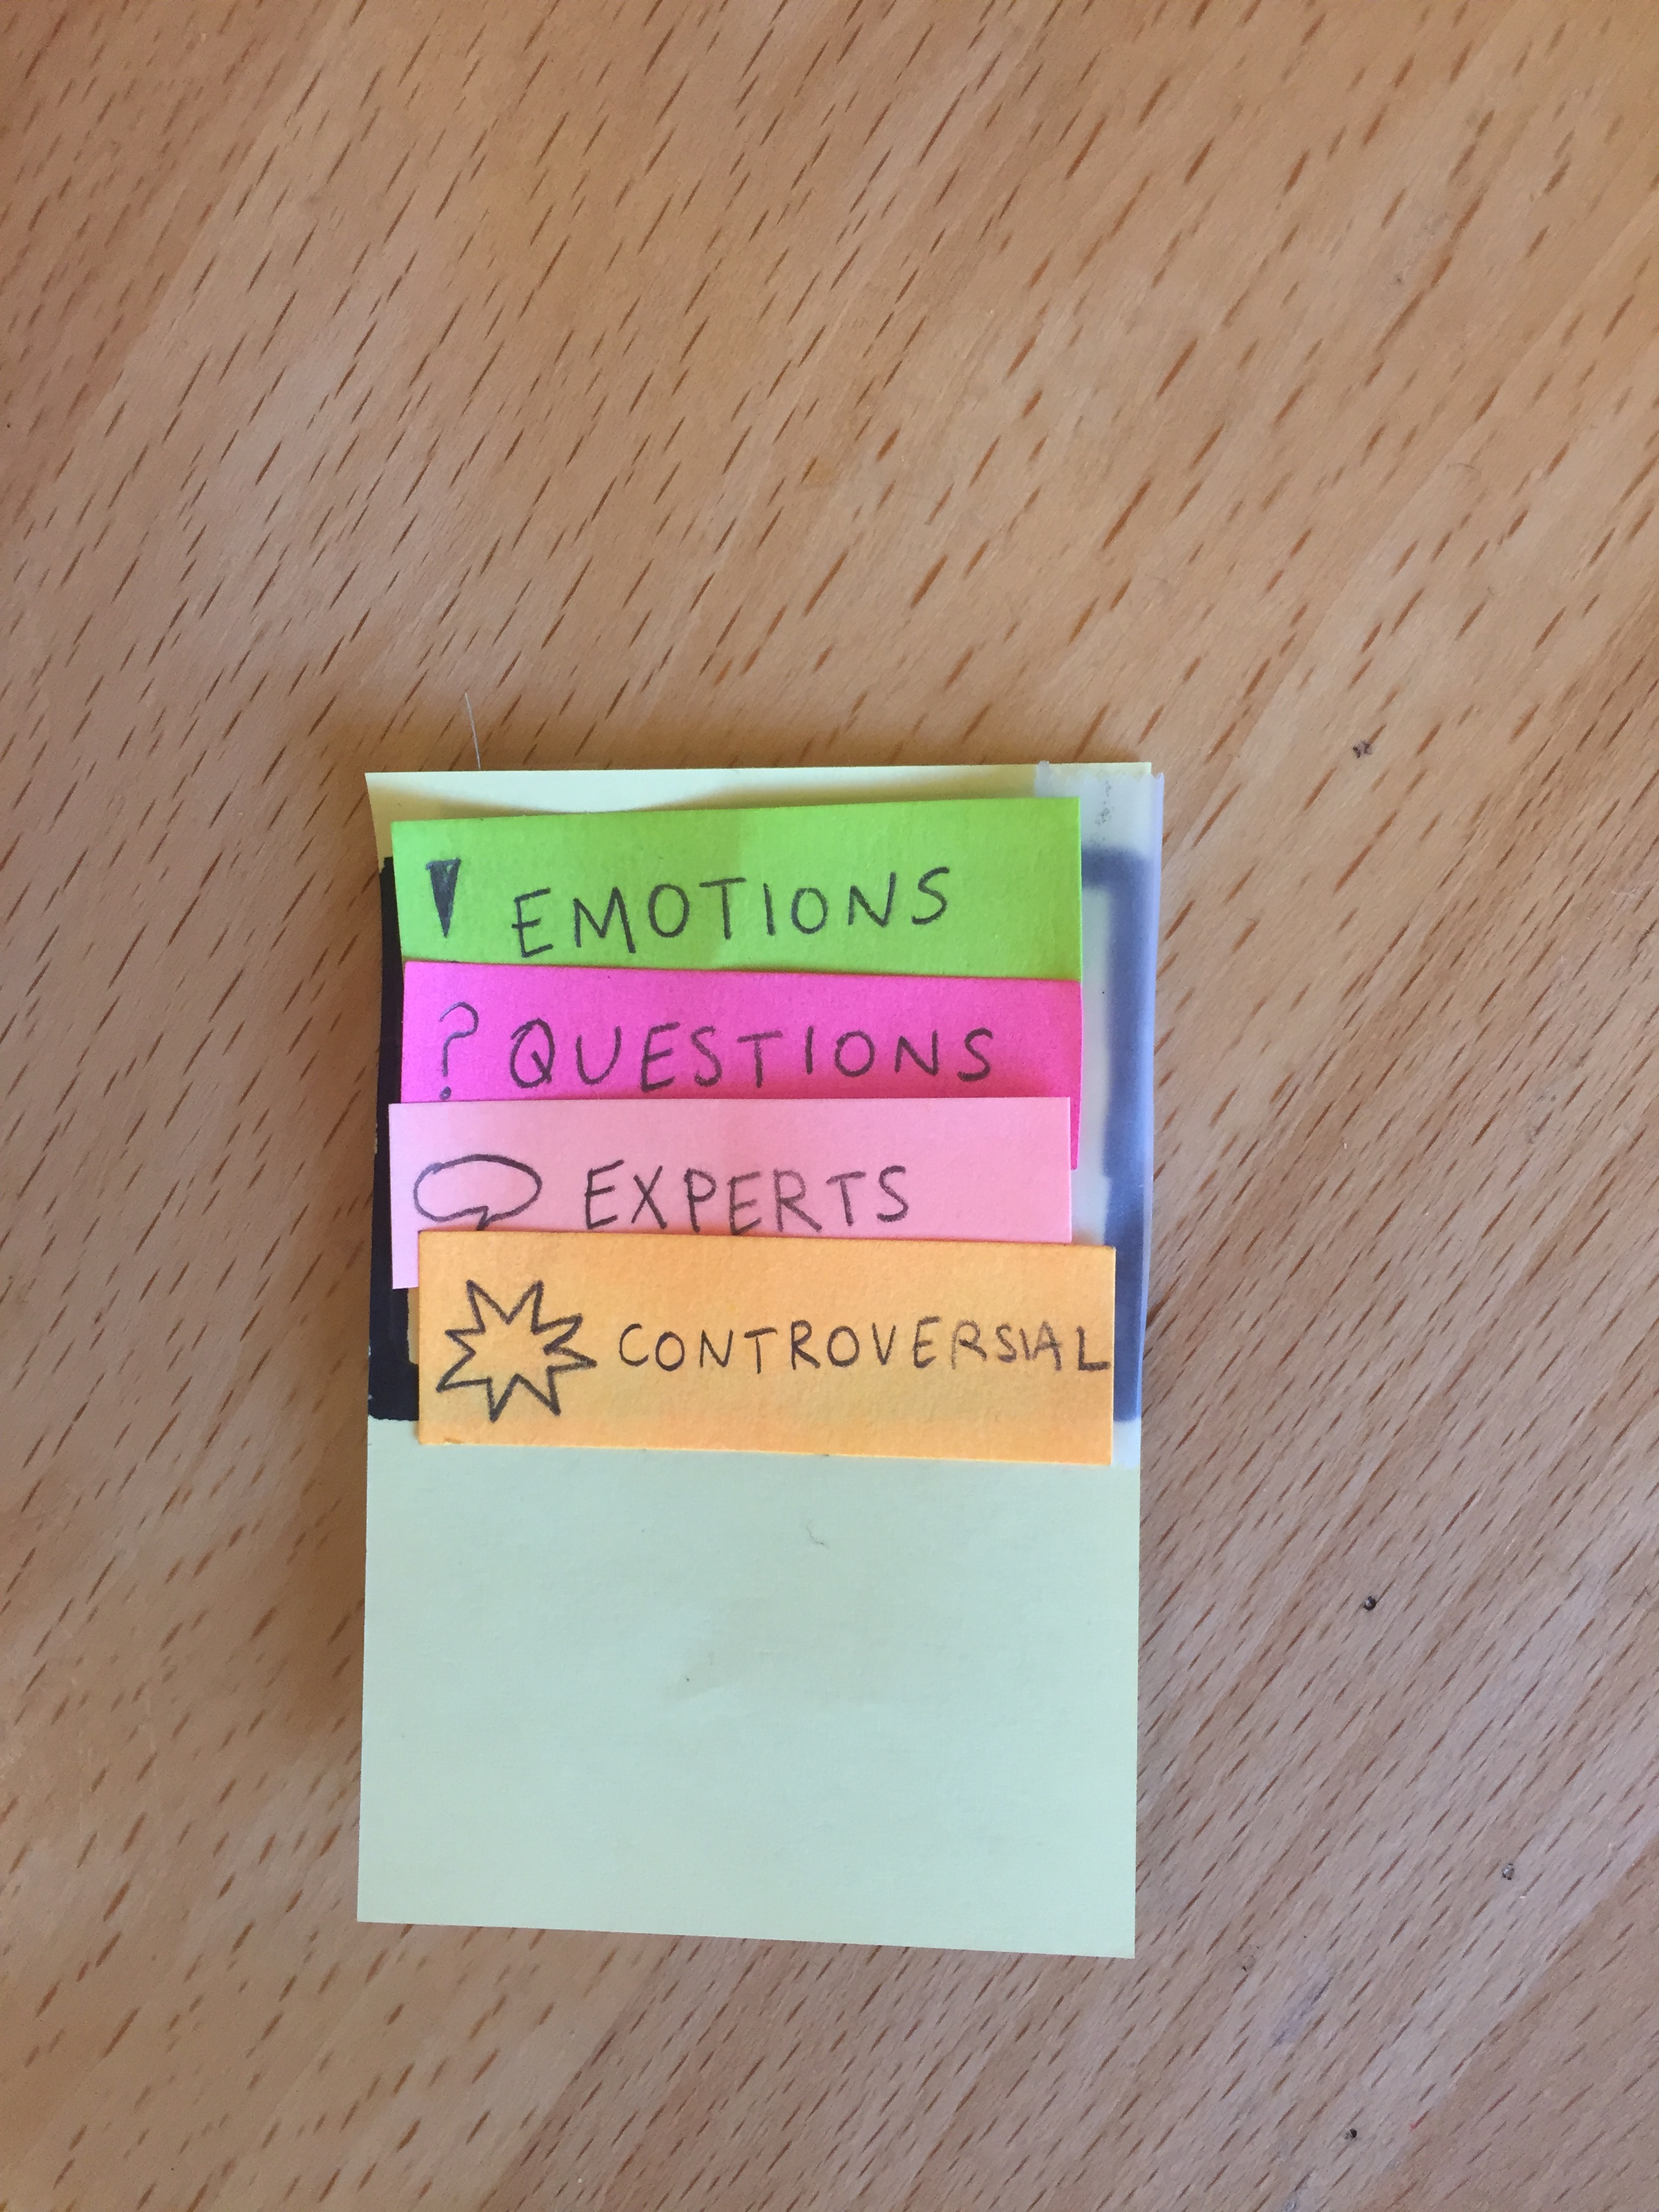 ! EMOTIONS
? QUESTIONS
EXPERTS
CONTROVERSIAL